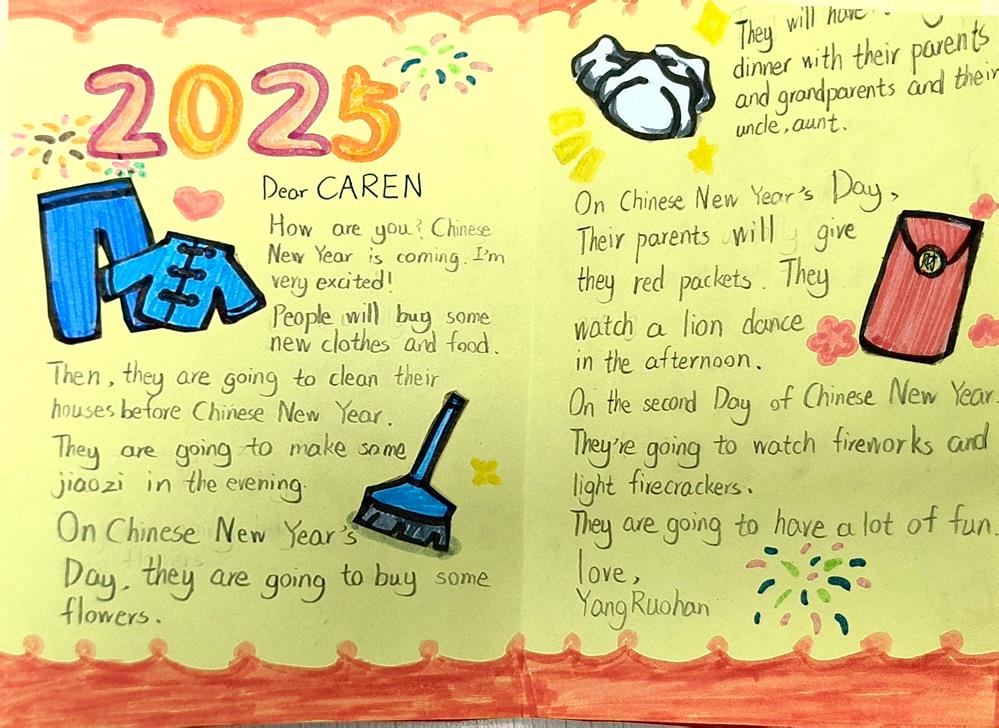 2025
Dear CAREN
How are you? Chinese
New Year is coming. I'm
very excited!
People will buy some
new clothes and food.
Then, they are going to clean their
houses before Chinese New Year.
They are going to make some
jiaozi in the evening.
On Chinese New Year's
Day, they are going to buy some
flowers.
They will have
dinner with their parents
and grandparents and their
uncle, aunt.
On Chinese New Year's Day,
Their parents will give
they red packets. They
watch a lion dance
in the afternoon.
On the second Day of Chinese New Year.
They're going to watch fireworks and
light firecrackers.
They are going to have a lot of fun.
love,
Yang Ruohan